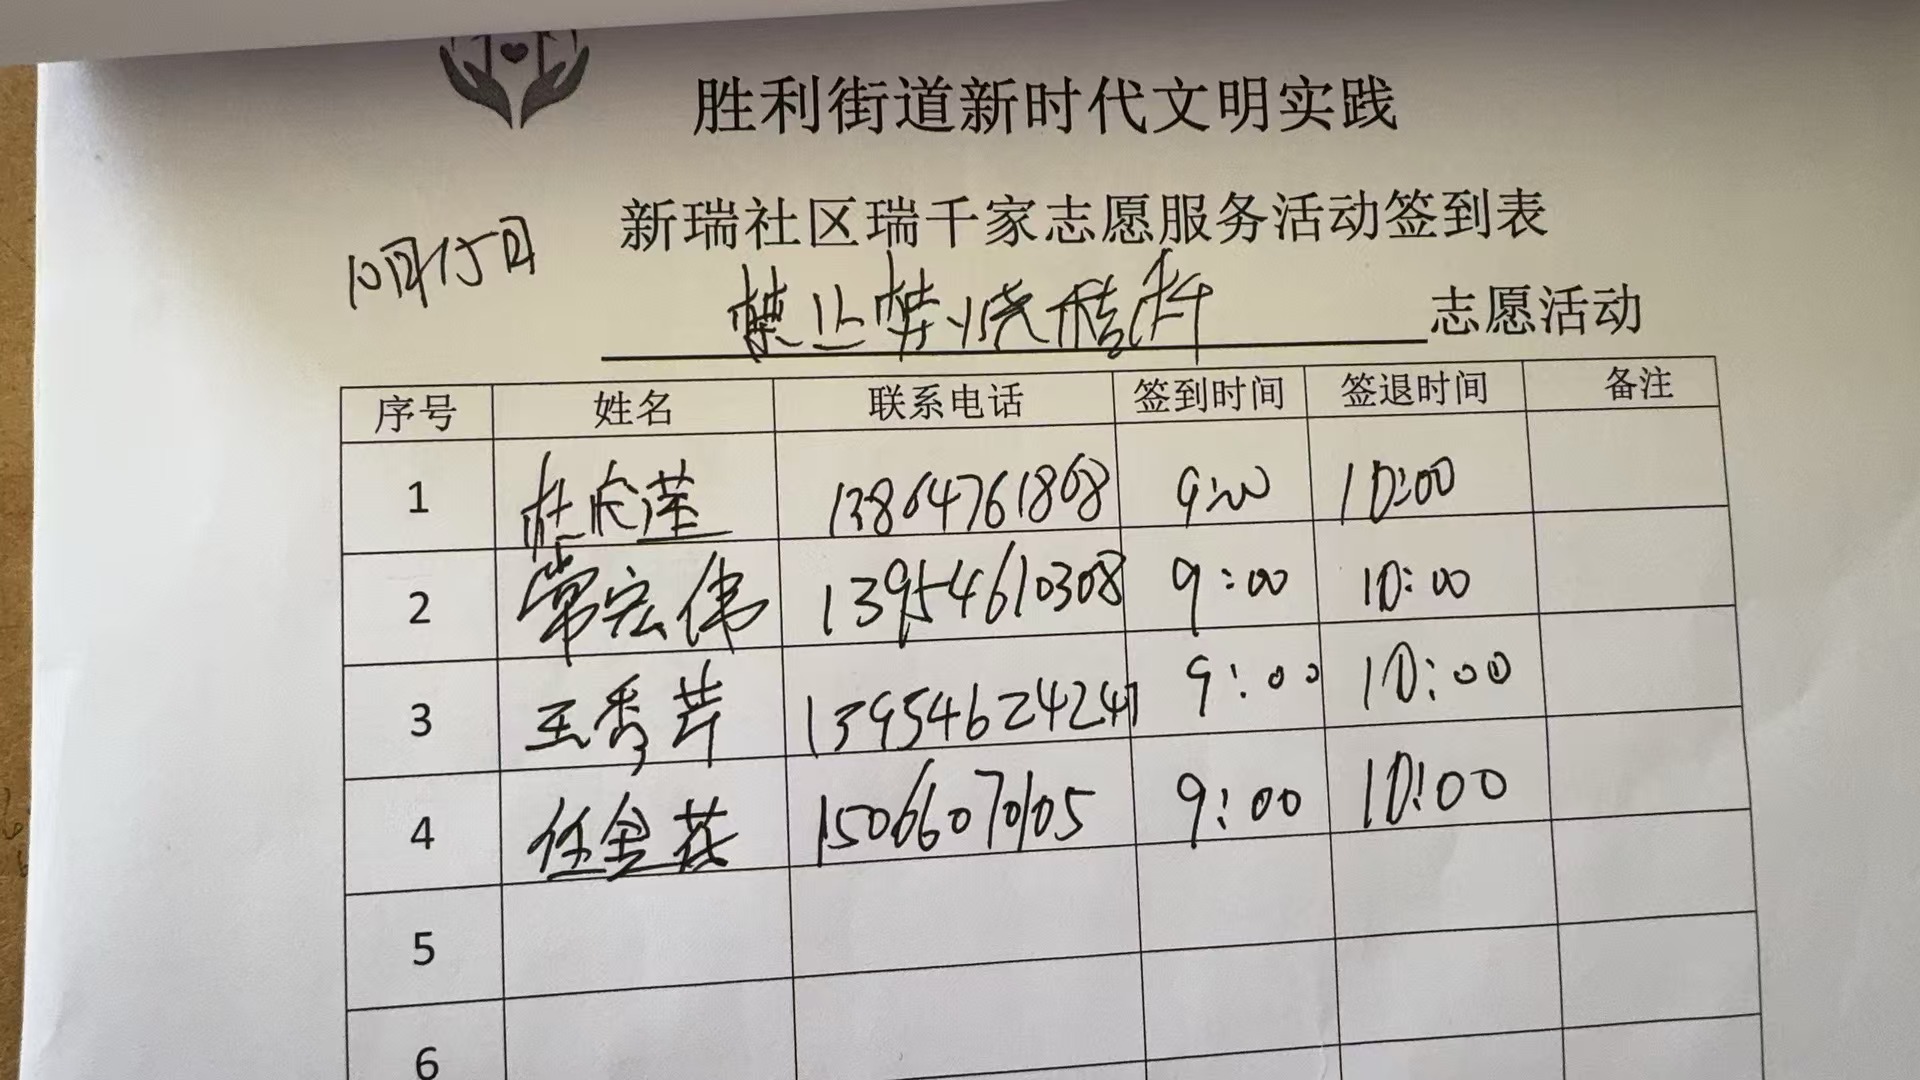 胜利街道新时代文明实践
新瑞社区瑞千家志愿服务活动签到表
10月15日
禁止焚烧秸秆 志愿活动
序号 姓名 联系电话 签到时间 签退时间 备注
1 13864761868 9:00 10:00
2 常宏伟 13954610308 9:00 10:00
3 王秀芹 13954624247 9:00 10:00
4 任金花 15066070105 9:00 10:00
5
6